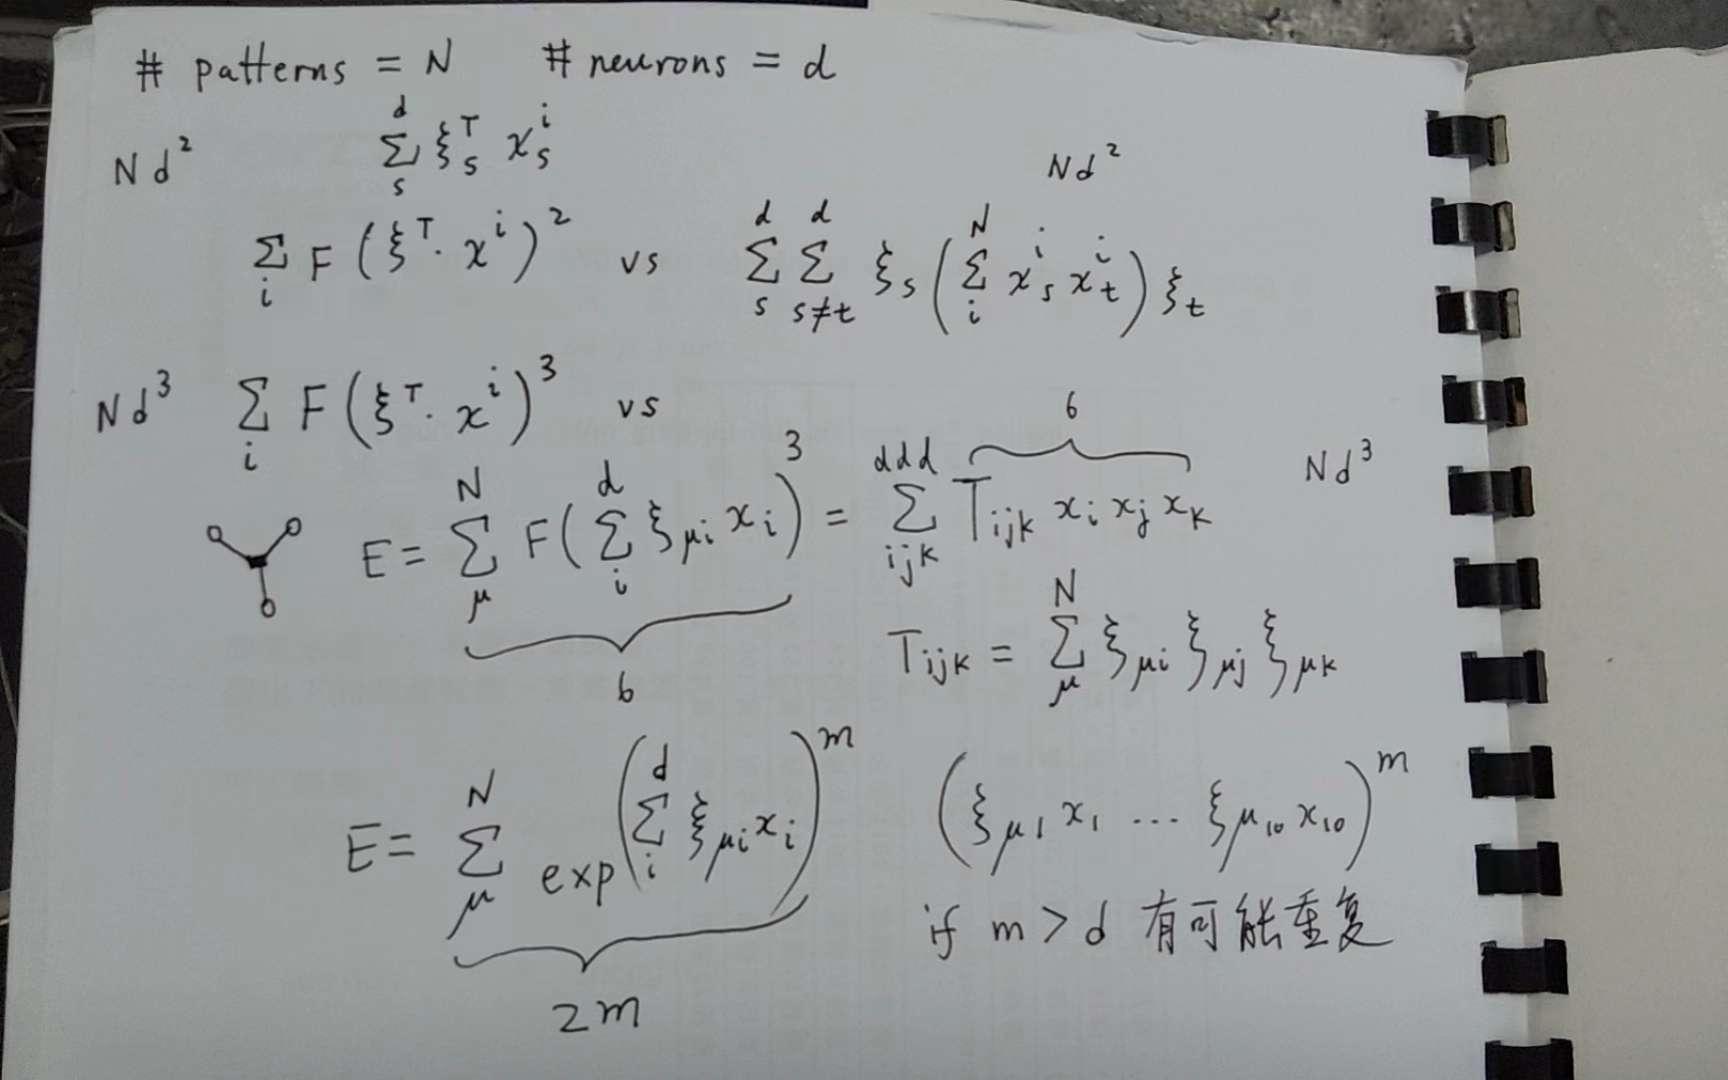 # patterns = N # neurons = d
Nd² ∑_s^d ξ_s^T x_s^i Nd²
∑_i F(ξ^T · x^i)² vs ∑_s^d ∑_{s≠t}^d ξ_s (∑_i^N x_s^i x_t^i) ξ_t
Nd³ ∑_i F(ξ^T · x^i)³ vs
E = ∑_μ^N F(∑_i^d ξ_{μi} x_i)³ = ∑_{ijk}^{ddd} T_{ijk} x_i x_j x_k Nd³
6
6
T_{ijk} = ∑_μ^N ξ_{μi} ξ_{μj} ξ_{μk}
E = ∑_μ^N exp(∑_i^d ξ_{μi} x_i)^m (ξ_{μ1} x_1 ... ξ_{μ10} x_{10})^m
2m
if m > d 有可能重复